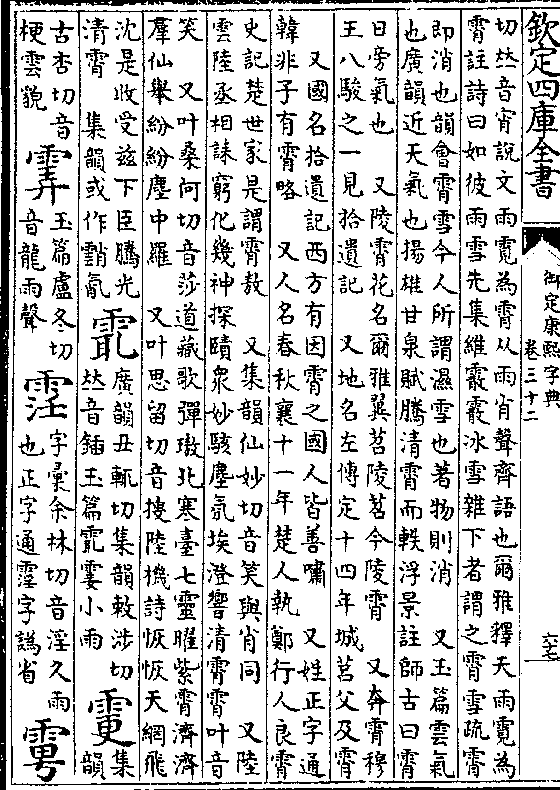 欽定四庫全書
御定康熙字典
卷三十二
切𠀤音宵說文雨䨘為霄从雨肖聲齊語也爾雅釋天雨䨘為
霄註詩曰如彼雨雪先集維霰霰冰雪雜下者謂之霄雪疏霄
即消也韻會霄雪今人所謂濕雪也著物則消 又玉篇雲氣
也廣韻近天氣也揚雄甘泉賦騰清霄而軼浮景註師古曰霄
日旁氣也 又陵霄花名爾雅翼苕陵苕今陵霄 又奔霄穆
王八駿之一見拾遺記 又地名左傳定十四年城莒父及霄
又國名拾遺記西方有因霄之國人皆善嘯 又姓正字通
韓非子有霄略 又人名春秋襄十一年楚人執鄭行人良霄
史記楚世家是謂霄敖 又集韻仙妙切音笑與肖同 又陸
雲陸丞相誄窮化幾神探賾衆妙駭塵氛埃澄響清霄霄叶音
笑 又叶桑何切音莎道藏歌彈璈北寒臺七靈曜紫霄濟濟
羣仙舉紛紛塵中羅 又叶思留切音搜陸機詩恢恢天網飛
沈是收受兹下臣騰光
清霄 集韻或作
廣韻丑輒切集韻敕涉切
𠀤音鍤玉篇 霎小雨
集
韻
古杏切音
梗雲貌
玉篇盧冬切
音龍雨聲
字彙余林切音淫久雨
也正字通霪字譌省